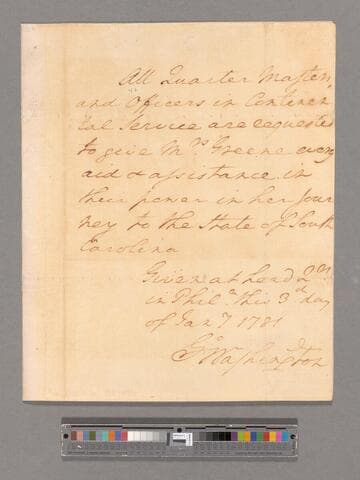 All Quarter Masters,
and Officers in Continen
tal Service are requested
to give Mrs Greene every
aid & assistance in
their power in her Jour
ney to the State of South
Carolina
Given at head Qrs
in Phila this 3d day
of Jany 1781
Go Washington